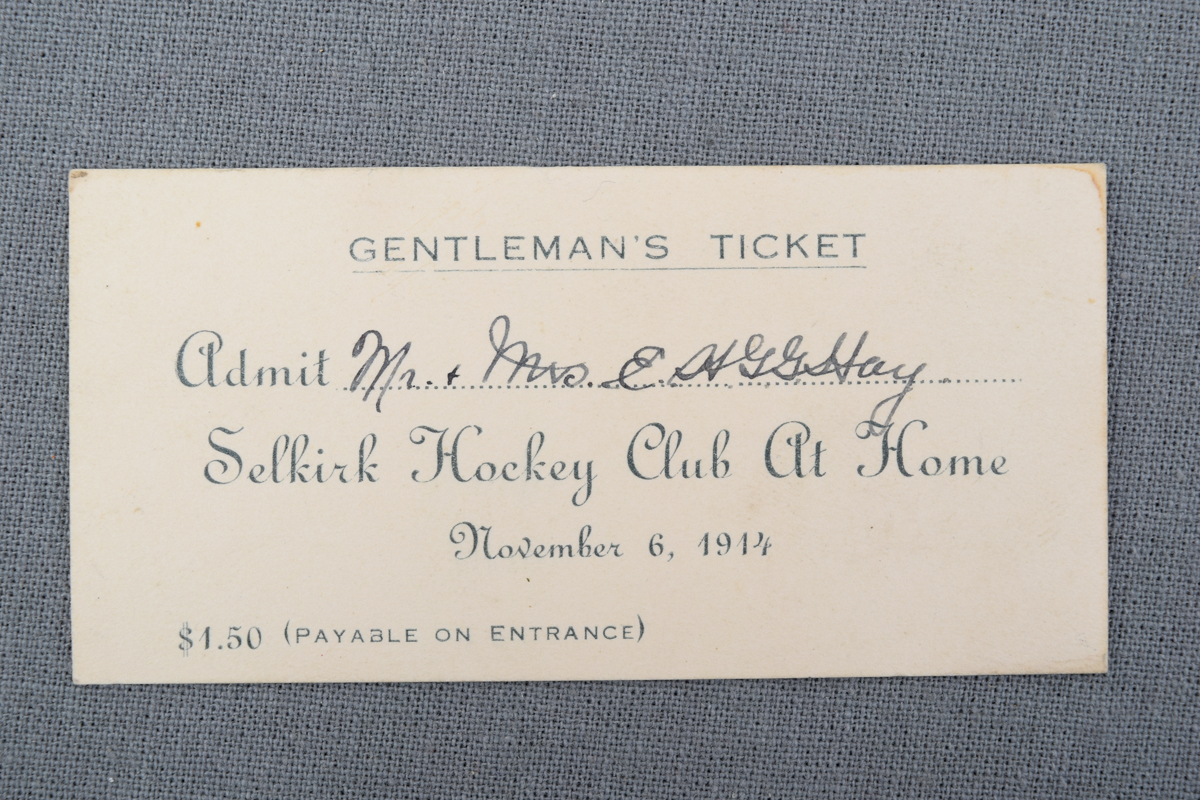 GENTLEMAN'S TICKET
Admit Mr. + Mrs. E. H G G Hay
Selkirk Hockey Club At Home
November 6, 1914
$1.50 (PAYABLE ON ENTRANCE)